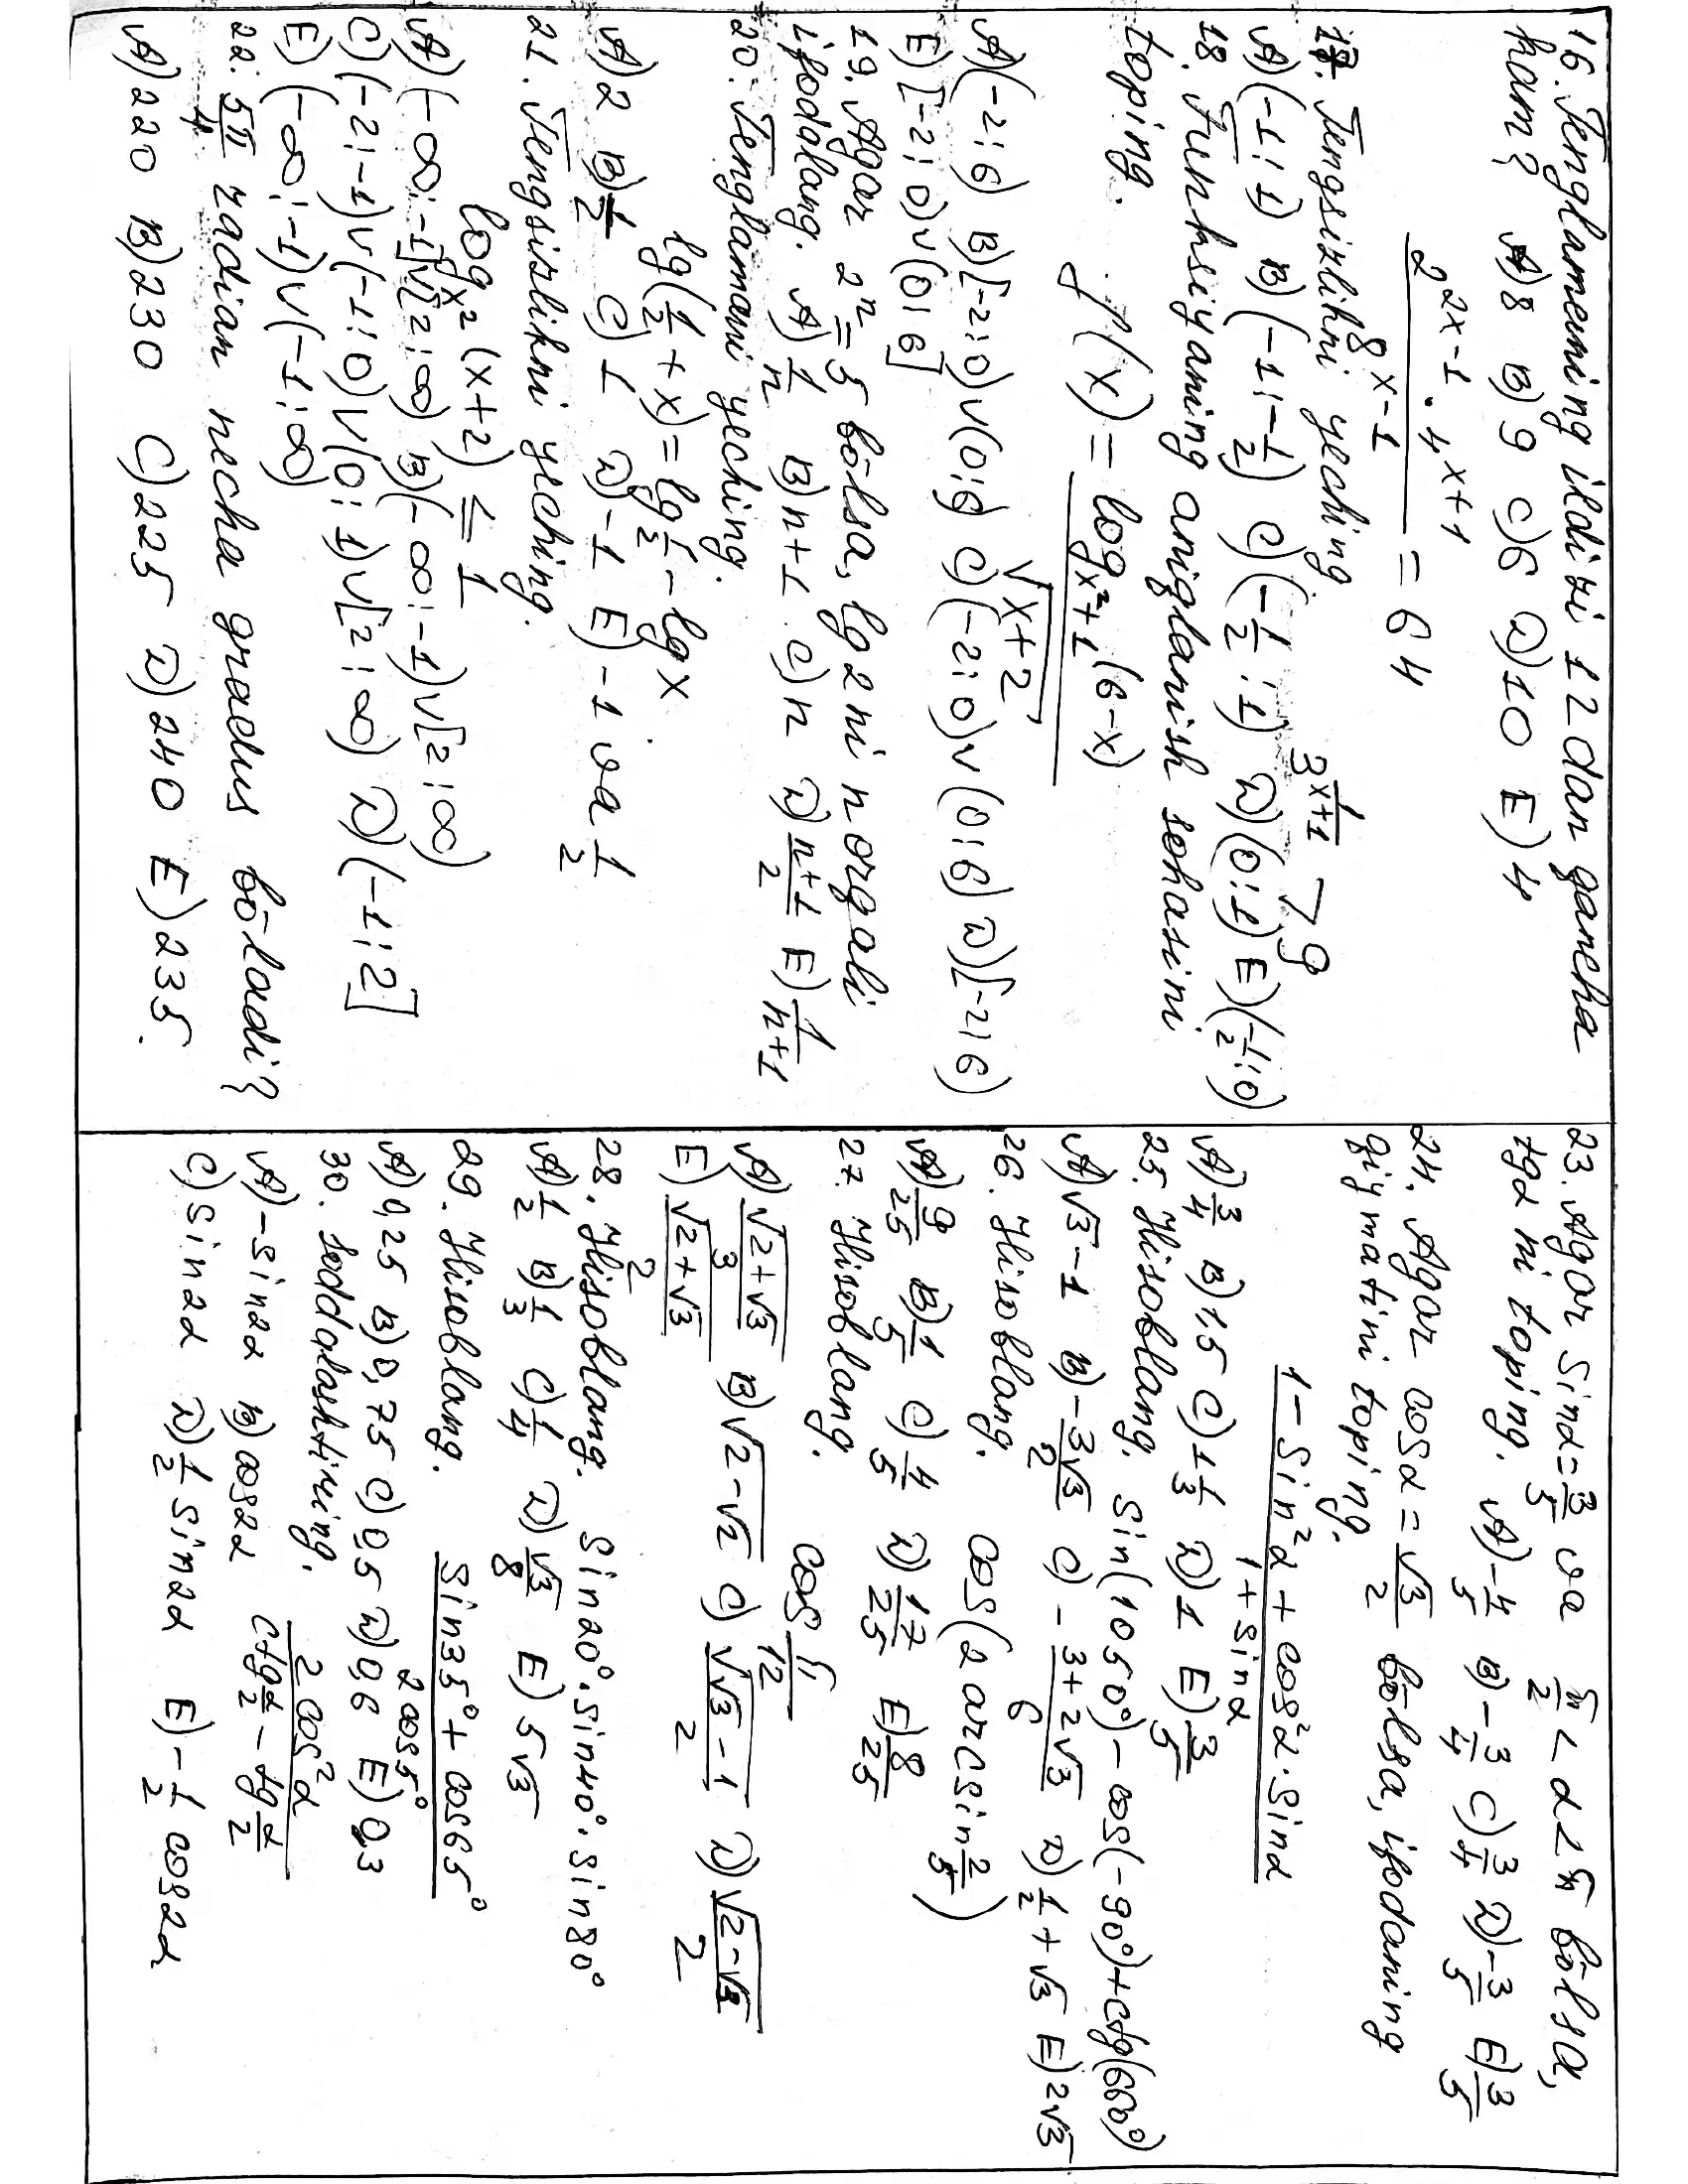 16. Tenglamening ildizi 12 dan qancha
kam? A) 8 B) 9 C) 6 D) 10 E) 4
2^(2x-1) · 4^(x+1) / 8^(x-1) = 64
17. Tengsizlikni yeching. 3^(1/(x+1)) > 9
A) (-1; 1) B) (-1; -1/2) C) (-1/2; 1) D) (0; 1) E) (-1/2; 0)
18. Funksiyaning aniqlanish sohasini
toping.
f(x) = log_(x²+1) (6-x) / √(x+2)
A) (-2; 6) B) [-2; 0) ∨ (0; 6) C) (-2; 0) ∨ (0; 6) D) [-2; 6)
E) [-2; 0) ∨ (0; 6]
19. Agar 2ⁿ = 5 bo'lsa, lg 2 ni n orqali
ifodalang. A) 1/n B) n+1 C) n D) (n+1)/2 E) 1/(n+1)
20. Tenglamani yeching.
lg(1/2 + x) = lg 1/2 - lg x
A) 2 B) 1/2 C) 1 D) -1 E) -1 va 1/2
21. Tengsizlikni yeching.
log_x² (x+2) ≤ 1
A) (-∞; -1] ∨ [2; ∞) B) (-∞; -1) ∨ [2; ∞)
C) (-2; -1) ∨ (-1; 0) ∨ (0; 1) ∨ [2; ∞) D) (-1; 2]
E) (-∞; -1) ∨ (-1; ∞)
22. 5π/4 radian necha gradus bo'ladi?
A) 220 B) 230 C) 225 D) 240 E) 235.
23. Agar sinα = 3/5 va π/2 < α < π bo'lsa,
tgα ni toping. A) -4/5 B) -3/4 C) 3/4 D) -3/5 E) 3/5
24. Agar cosα = √3/2 bo'lsa, ifodaning
qiymatini toping.
(1 - sin²α + cos²α · sinα) / (1 + sinα)
A) 3/4 B) 1,5 C) 1 1/3 D) 1 E) 3/5
25. Hisoblang. sin(1050°) - cos(-90°) + ctg(660°)
A) √3 - 1 B) -3√3/2 C) -(3+2√3)/6 D) 1/2 + √3 E) 2√3
26. Hisoblang. cos(2 arcsin 2/5)
A) 9/25 B) 1/5 C) 4/5 D) 17/25 E) 8/25
27. Hisoblang. cos π/12
A) √(2+√3)/3 B) √(2-√2) C) √(√3-1)/2 D) √(2-√3)/2
E) √(2+√3)/2
28. Hisoblang. sin20° · sin40° · sin80°
A) 1/2 B) 1/3 C) 1/4 D) √3/8 E) 5√3
29. Hisoblang. (sin35° + cos65°) / 2cos5°
A) 0,25 B) 0,75 C) 0,5 D) 0,6 E) 0,3
30. Soddalashtiring. 2cos²α / (ctg α/2 - tg α/2)
A) -sin2α B) cos2α
C) sin2α D) 1/2 sin2α E) -1/2 cos2α